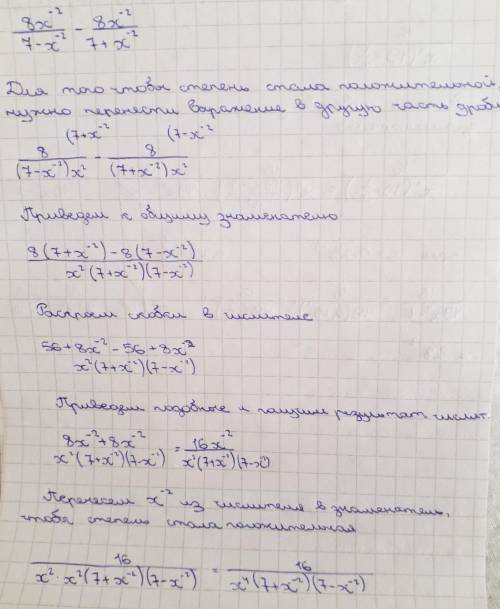 8x⁻²/(7-x⁻²) - 8x⁻²/(7+x⁻²)
Для того чтобы степень стала положительной,
нужно перенести выражение в другую часть дроби
(7+x⁻² (7-x⁻²
8/((7-x⁻²)x²) - 8/((7+x⁻²)x²)
Приведем к общему знаменателю
(8(7+x⁻²)-8(7-x⁻²))/(x²(7+x⁻²)(7-x⁻²))
Раскроем скобки в числителе
(56+8x⁻²-56+8x⁻²)/(x²(7+x⁻²)(7-x⁻²))
Приведем подобные и пишем результат числит.
(8x⁻²+8x⁻²)/(x²(7+x⁻²)(7-x⁻²)) = 16x⁻²/(x²(7+x⁻²)(7-x⁻²))
Перенесем x⁻² из числителя в знаменатель,
чтобы степень стала положительная
16/(x²·x²(7+x⁻²)(7-x⁻²)) = 16/(x⁴(7+x⁻²)(7-x⁻²))